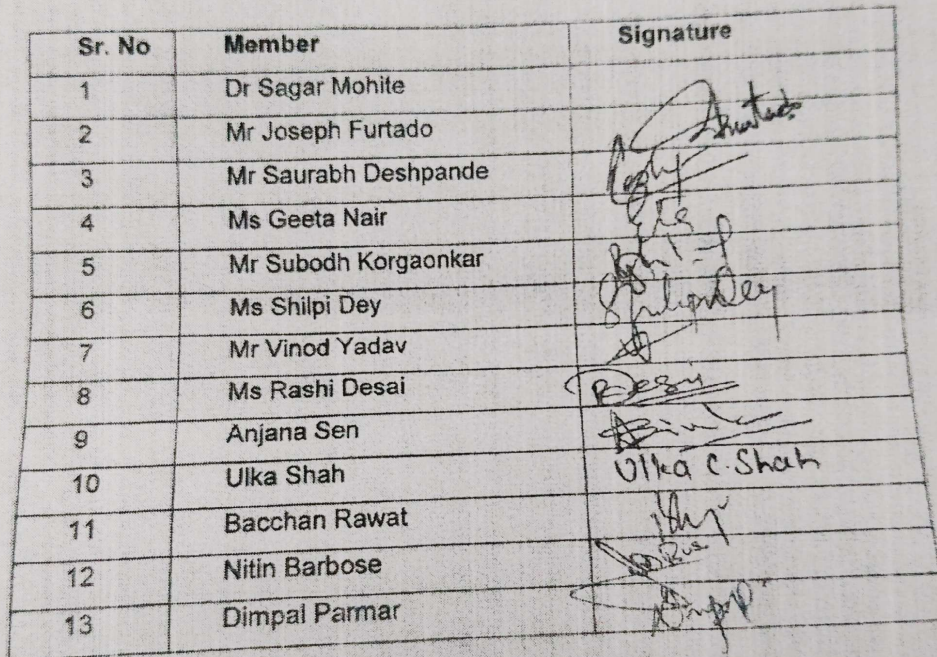 Sr. No Member Signature
1 Dr Sagar Mohite
2 Mr Joseph Furtado Furtado
3 Mr Saurabh Deshpande
4 Ms Geeta Nair
5 Mr Subodh Korgaonkar
6 Ms Shilpi Dey Shilpi Dey
7 Mr Vinod Yadav
8 Ms Rashi Desai RDesai
9 Anjana Sen
10 Ulka Shah Ulka C. Shah
11 Bacchan Rawat
12 Nitin Barbose
13 Dimpal Parmar